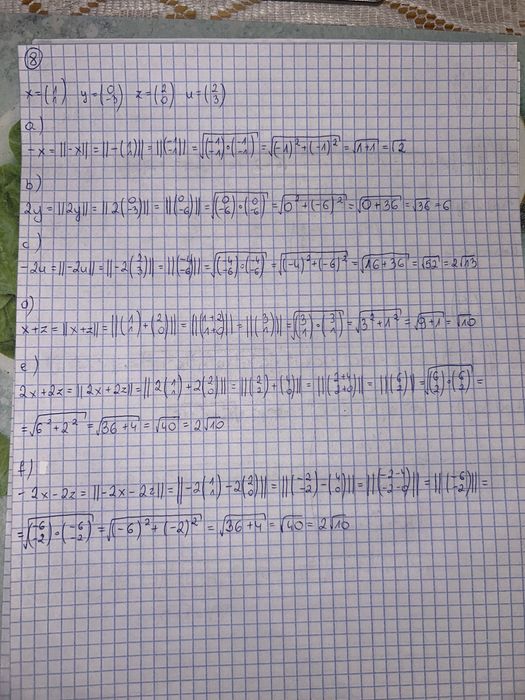 8
x=(1 1) y=(0 -3) z=(2 0) u=(2 3)
a)
-x=||-x||=||-(1 1)||=||(-1 -1)||=√(-1 -1)·(-1 -1)=√(-1)²+(-1)²=√1+1=√2
b)
2y=||2y||=||2(0 -3)||=||(0 -6)||=√(0 -6)·(0 -6)=√0²+(-6)²=√0+36=√36=6
c)
-2u=||-2u||=||-2(2 3)||=||(-4 -6)||=√(-4 -6)·(-4 -6)=√(-4)²+(-6)²=√16+36=√52=2√13
d)
x+z=||x+z||=||(1 1)+(2 0)||=||(1+2 1+0)||=||(3 1)||=√(3 1)·(3 1)=√3²+1²=√9+1=√10
e)
2x+2z=||2x+2z||=||2(1 1)+2(2 0)||=||(2 2)+(4 0)||=||(2+4 2+0)||=||(6 2)||=√(6 2)·(6 2)=
=√6²+2²=√36+4=√40=2√10
f)
-2x-2z=||-2x-2z||=||-2(1 1)-2(2 0)||=||(-2 -2)-(4 0)||=||(-2-4 -2-0)||=||(-6 -2)||=
=√(-6 -2)·(-6 -2)=√(-6)²+(-2)²=√36+4=√40=2√10